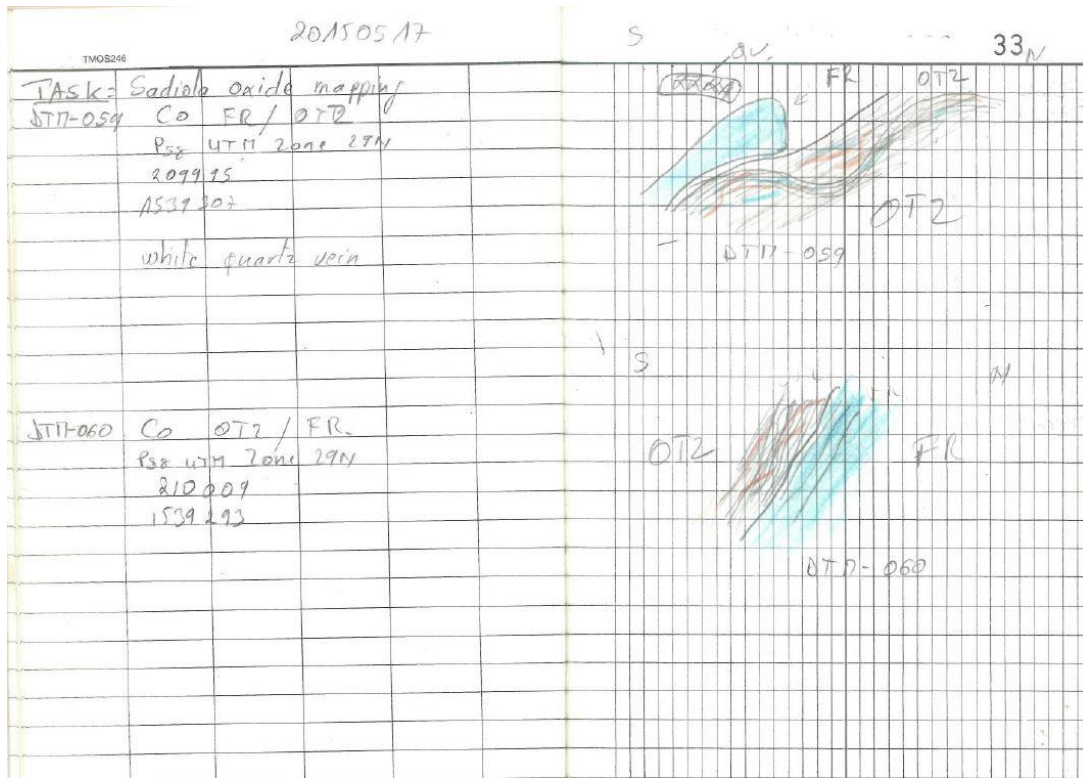 20150517
TMOS246
TASK: Sadiola oxide mapping
DTM-059 Co FR / OT2
Ps8 UTM Zone 29N
209995
1539307
white quartz vein
DTM-060 Co OT2 / FR.
Ps8 UTM Zone 29N
210009
1539293
S
qv.
33
N
FR OT2
OT2
DTM-059
S N
OT2 FR
DTM-060